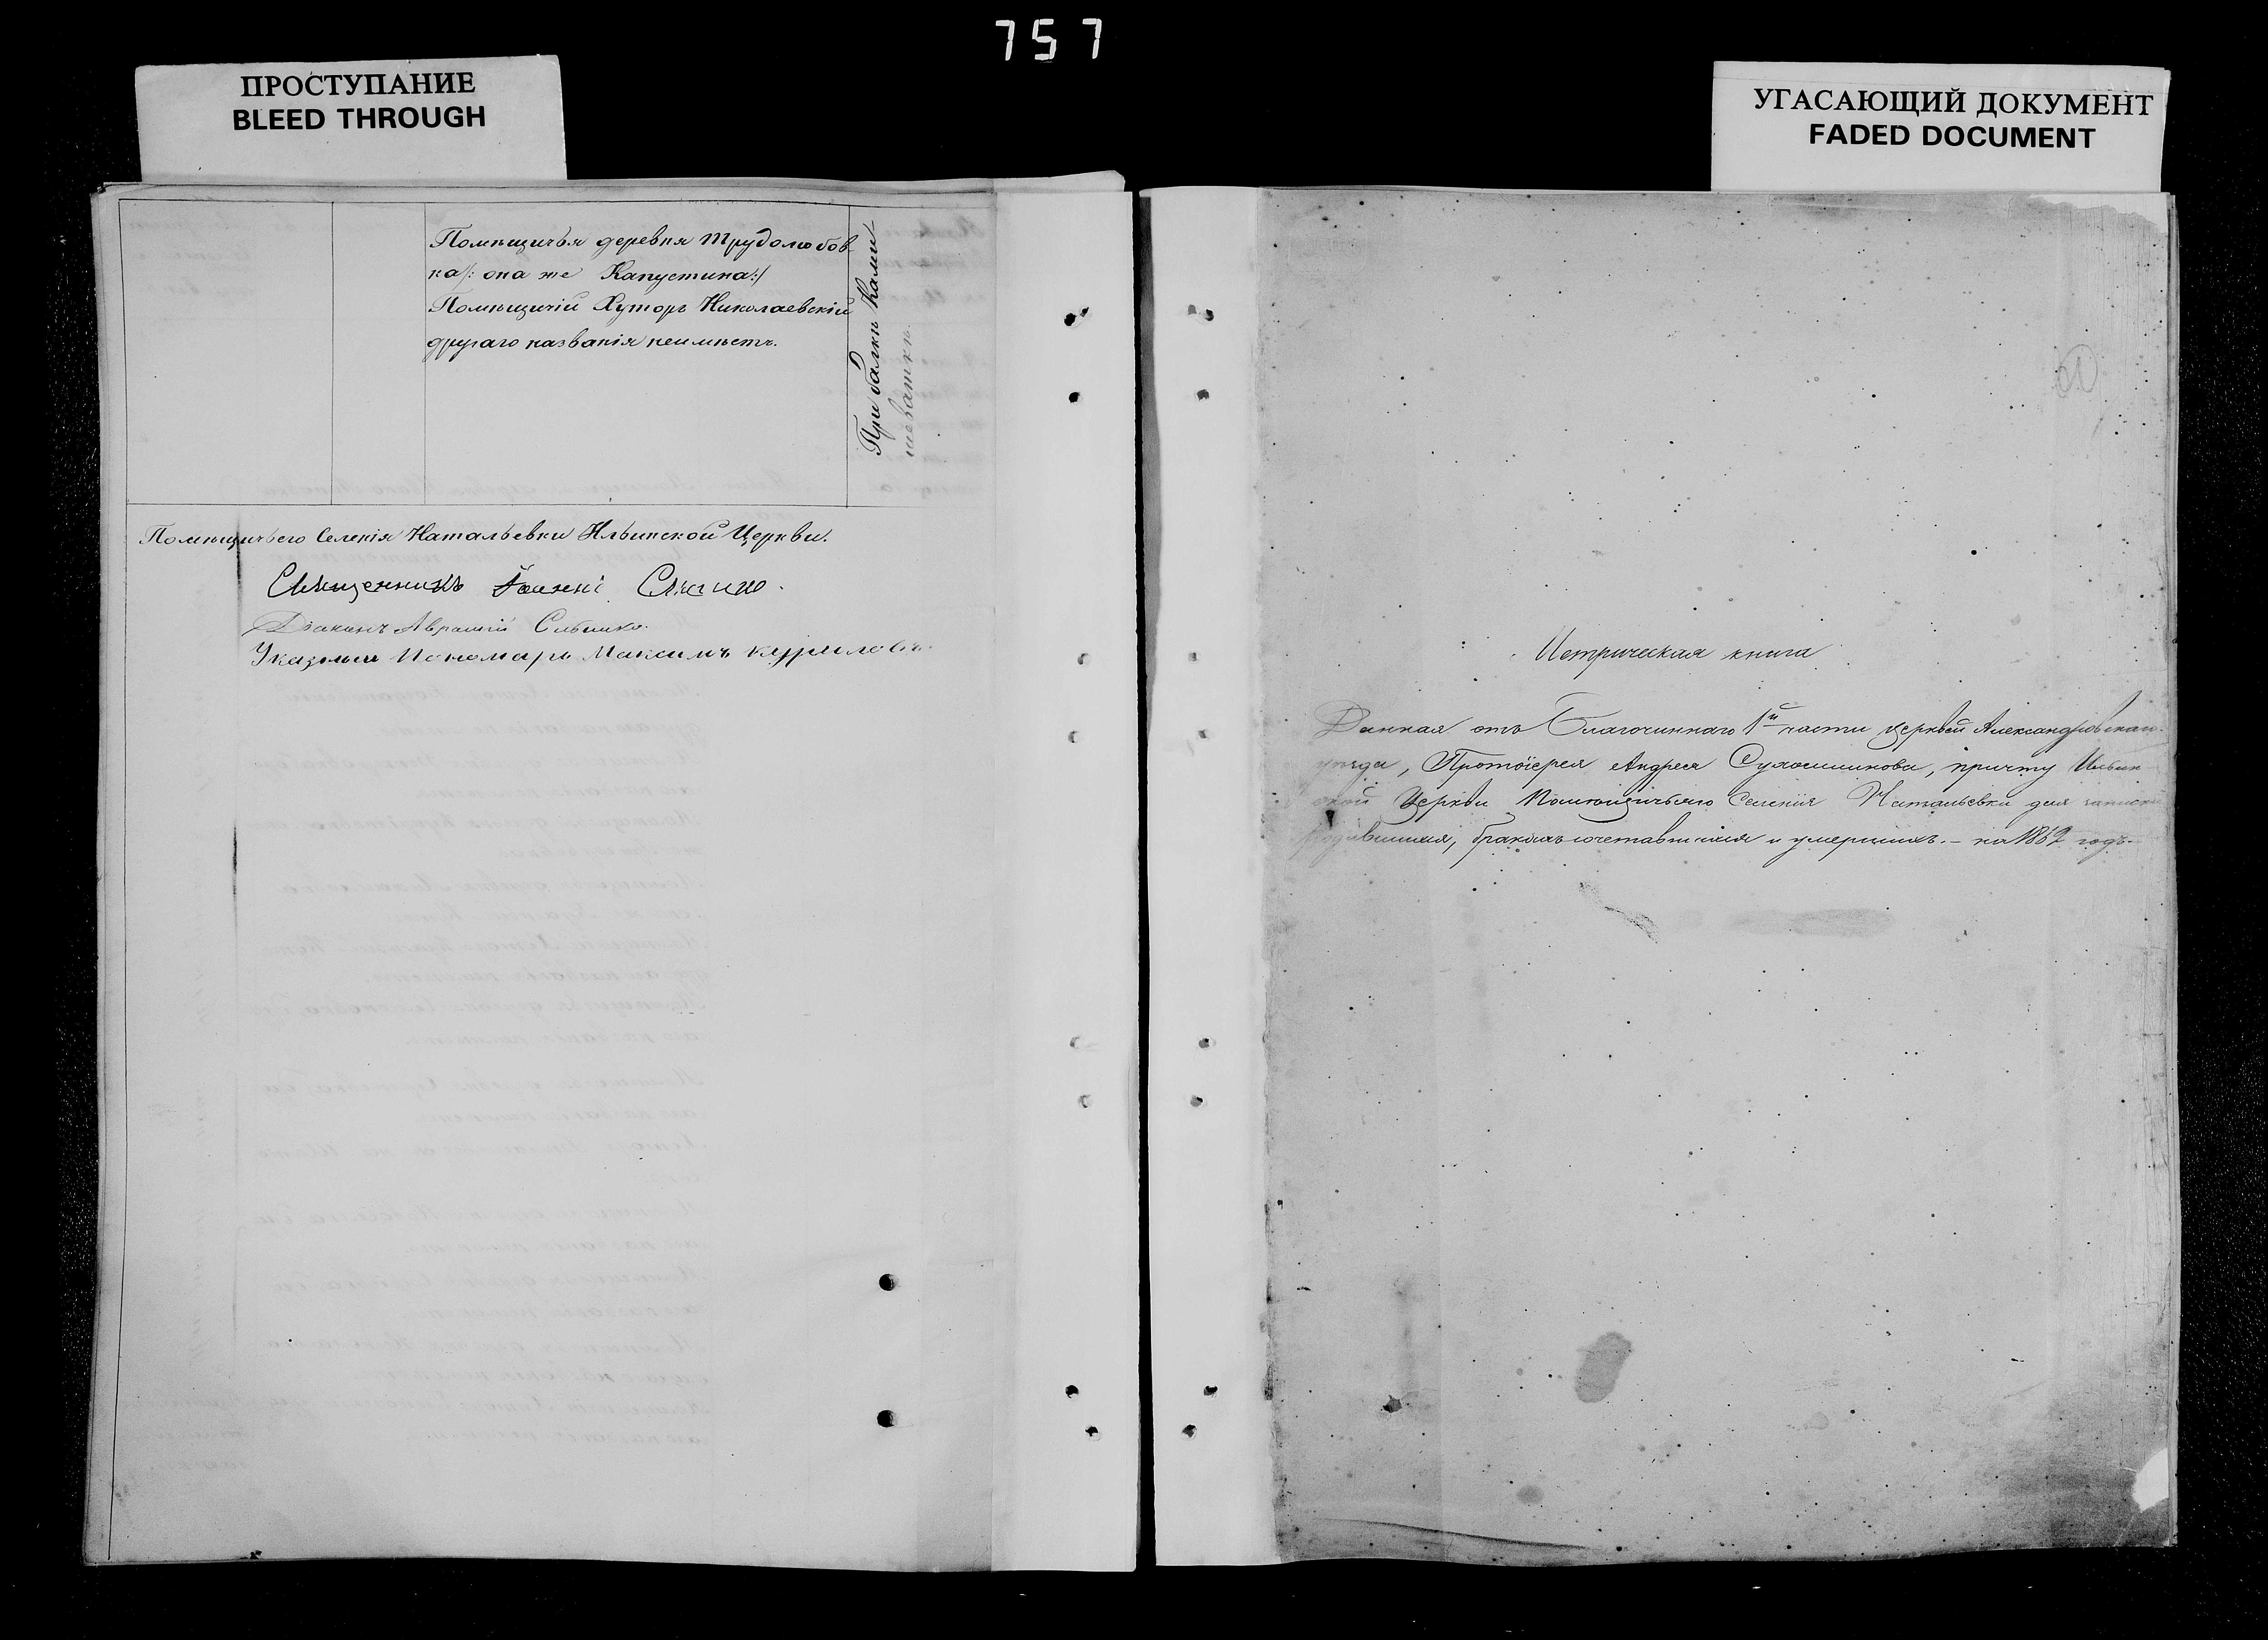 757
ПРОСТУПАНИЕ
BLEED THROUGH
УГАСАЮЩИЙ ДОКУМЕНТ
FADED DOCUMENT
Помѣщичья деревня Трудолюбов
ка/: она же Капустина:/
Помѣщичій Хуторъ Николаевскій
другаго названія неимѣетъ.
При балкѣ Камы
шеваткѣ.
Помѣщичьего Селенія Натальевки Ильинской Церкви.
Священникъ Іоаннъ
Діаконъ Аврамій
Указный Пономарь Максимъ Курилов
Метрическая книга
Данная отъ Благочиннаго 1й части церквей Александровскаго
уѣзда, Протоіерея Андрея, причту Ильин
ской Церкви Помѣщичьяго Селенія Натальевки для записи
родившихся, бракомъ сочетавшихся и умершихъ. - на 1862 годъ.